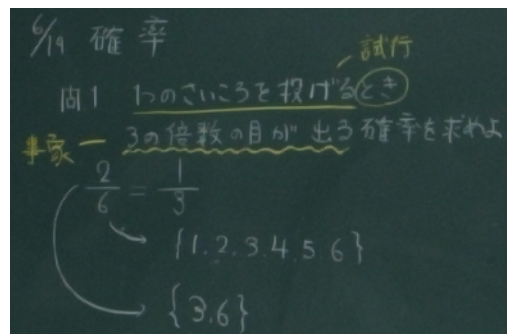 6/19 確率
試行
問1 1つのさいころを投げるとき
事象 3の倍数の目が出る確率を求めよ
2/6 = 1/3
{1.2.3.4.5.6}
{3.6}